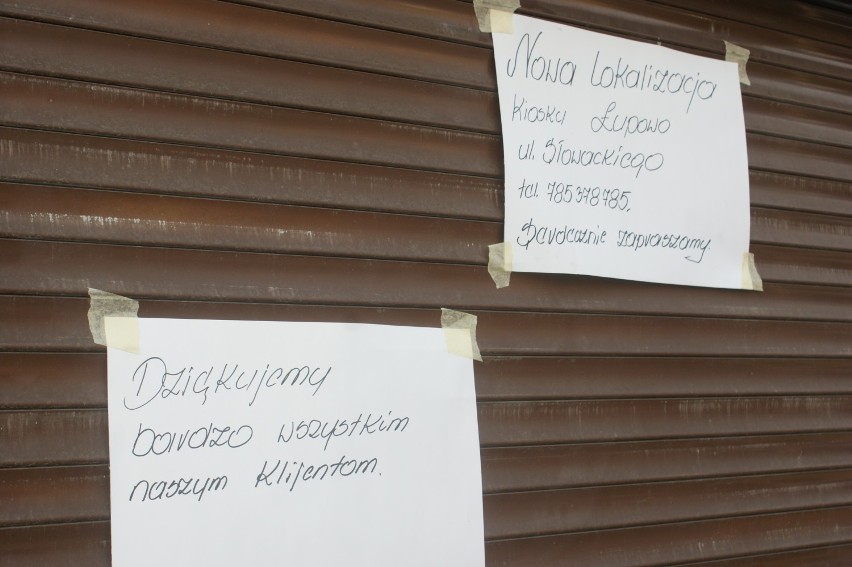 Nowa lokalizacja
Kiosku Łupowo
ul. Słowackiego
tel. 785378785.
Serdecznie zapraszamy
Dziękujemy
bardzo wszystkim
naszym klijentom.